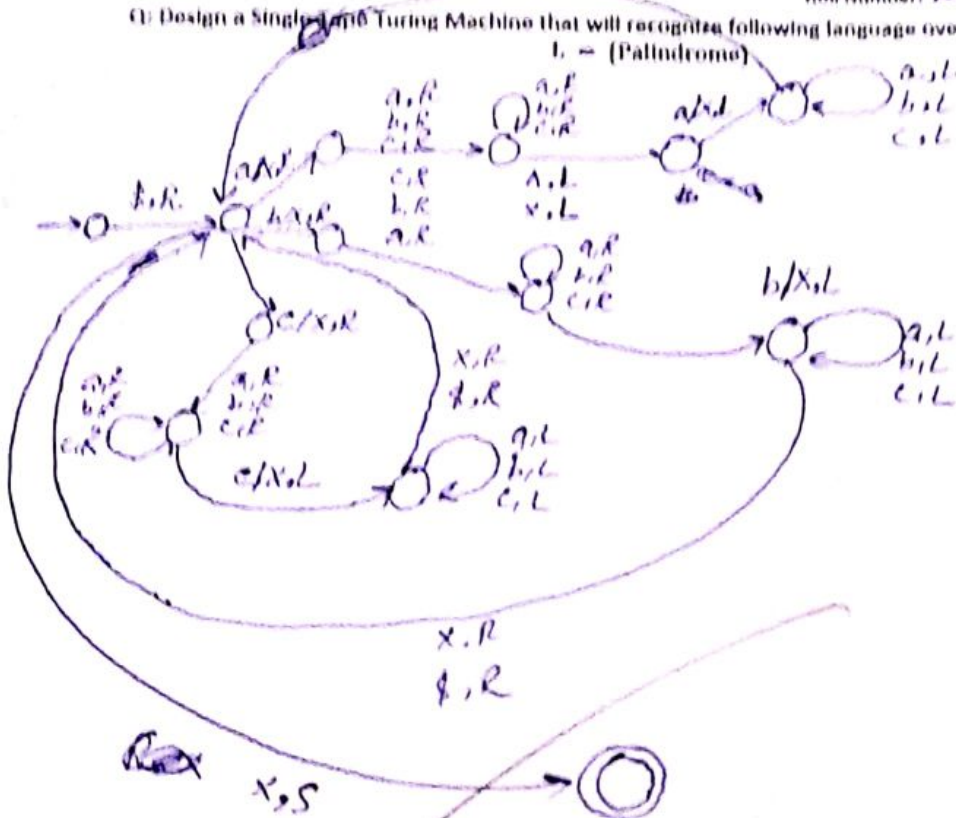 Q: Design a Single Tape Turing Machine that will recognize following language
L = (Palindrome)
a, R
b, R
c, R
a, R
b, R
c, R
a/x, L
a, L
b, L
c, L
$, R
c, R
b, R
a, R
x, L
a, R
b, R
c, R
b/X, L
a, L
b, L
c, L
c/X, R
a, R
b, R
c, R
a, R
b, R
c, R
x, R
$, R
c/x, L
a, L
b, L
c, L
x, R
$, R
x, S